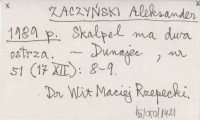 ZACZYŃSKI Aleksander
1989 r. Skalpel ma dwa
ostrza. – Dunajec, nr
51 (17 XII): 8–9.
Dr Wit Maciej Rzepecki.